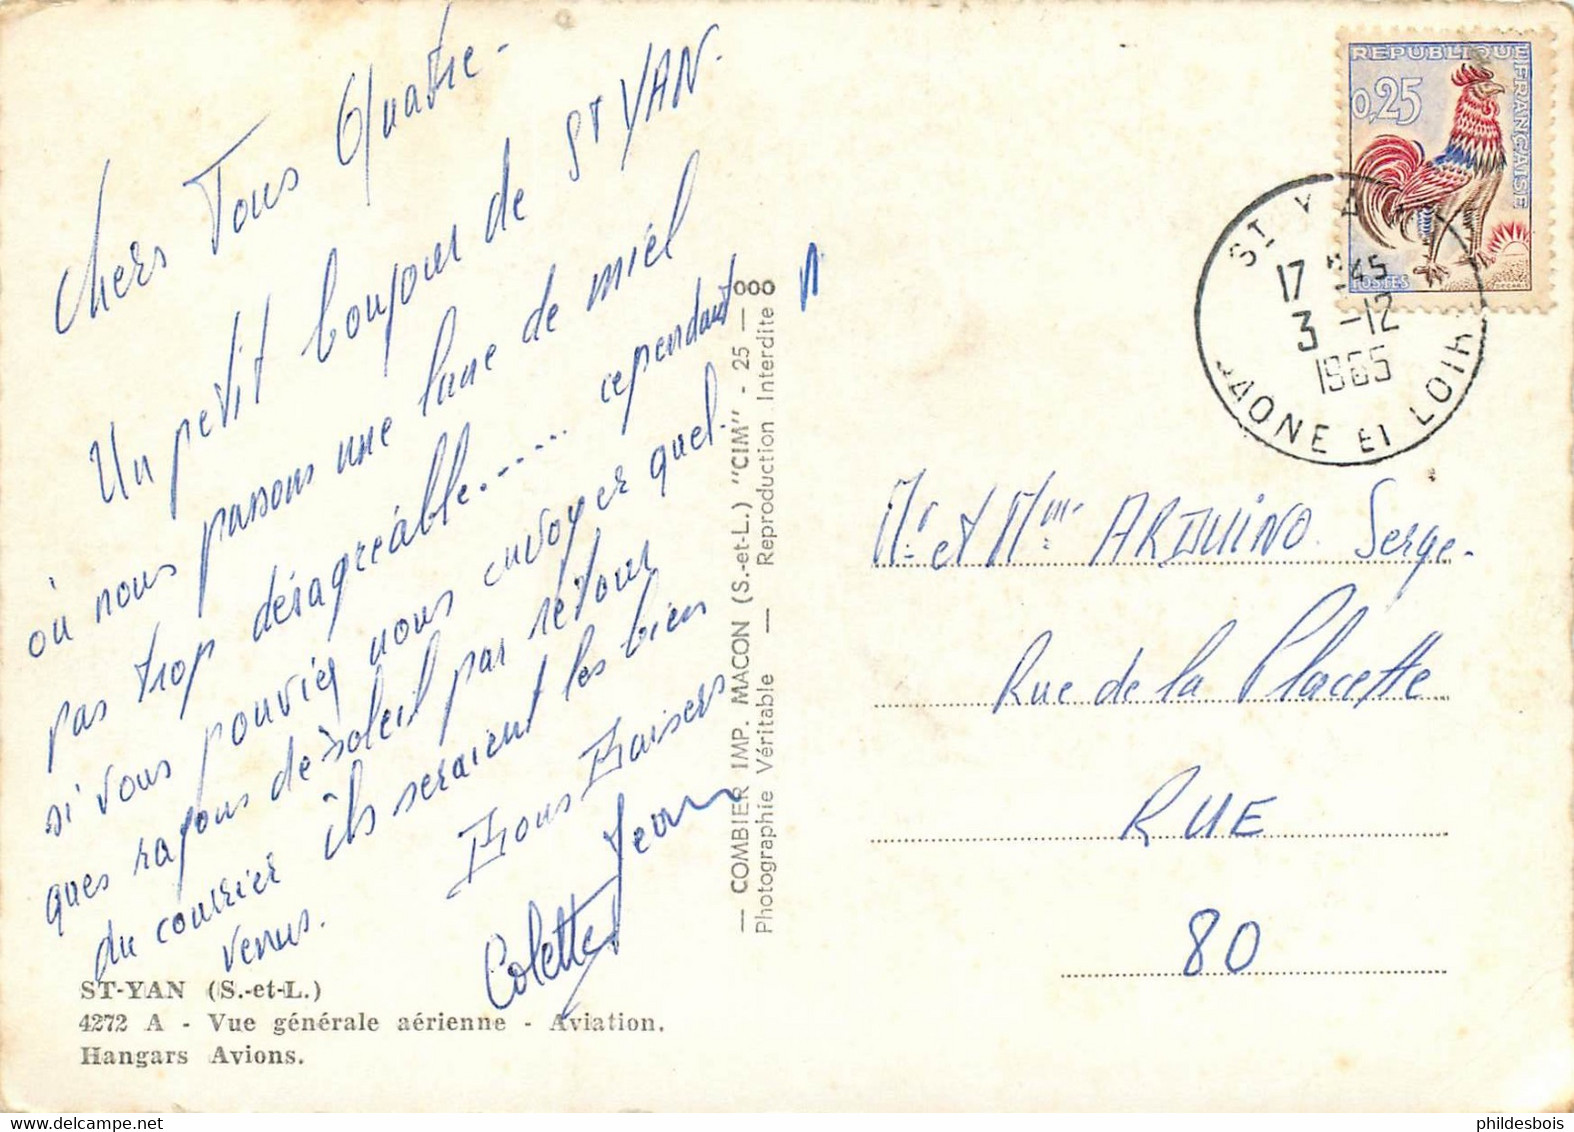 Chers Tous Quatre -
Un petit bonjour de St YAN.
où nous passons une lune de miel
pas trop désagréable..... cependant
si vous pouviez nous envoyer quel-
ques rayons de soleil par retour
du courrier ils seraient les bien
venus.
Bons Baisers
Jean
Colette
ST-YAN (S.-et-L.)
4272 A - Vue générale aérienne - Aviation.
Hangars Avions.
— COMBIER IMP. MACON (S.-et-L.) "CIM" - 25 — 000
Photographie Véritable — Reproduction Interdite
REPUBLIQUE FRANÇAISE
0,25
POSTES
ST YAN
17 H45
3 -12
1965
SAONE ET LOIRE
Mr et Mme ARDUINO Serge.
Rue de la Placette
RUE
80
phildesbois